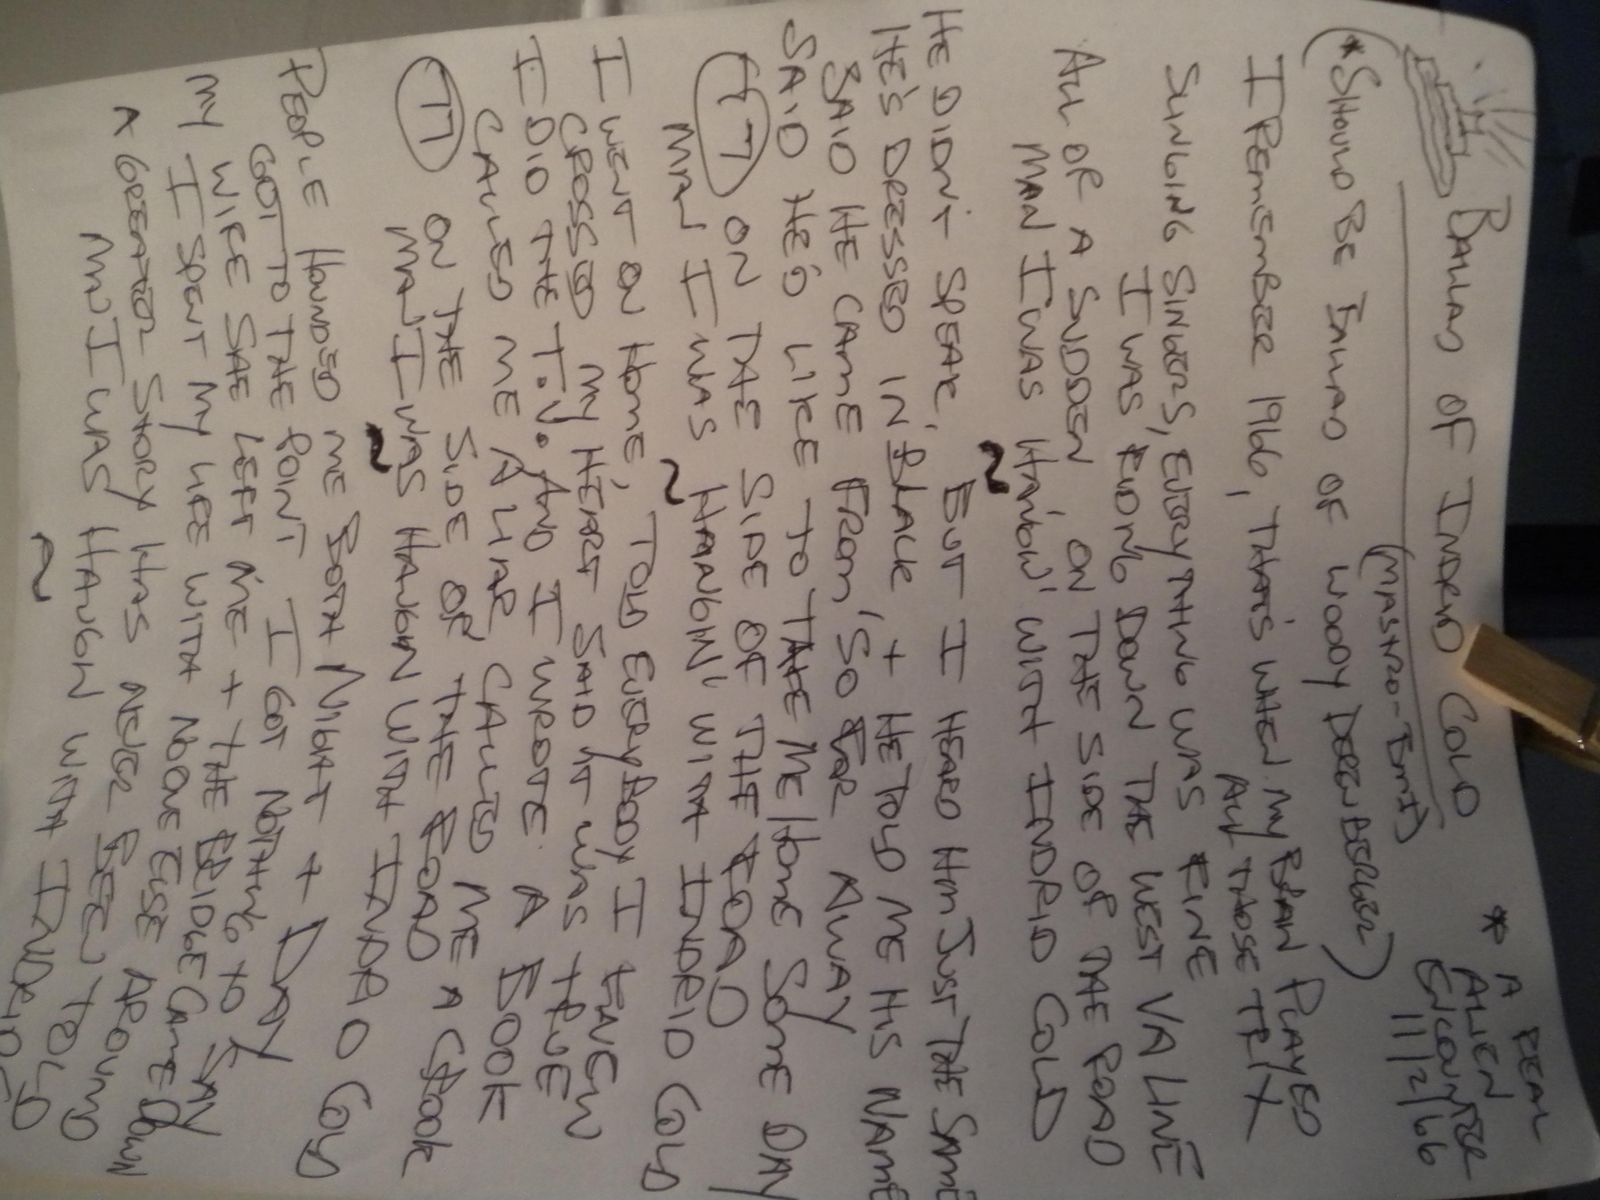 BALLAD OF INDRID COLD
(MASTRO-BMI)
* A REAL
ALIEN
ENCOUNTER
11/2/66
(* SHOULD BE BALLAD OF WOODY DERENBERGER)
I REMEMBER 1966, THAT'S WHEN MY BAN PLAYED
ALL THOSE TRIX
SINGING SINGERS, EVERYTHING WAS FINE
I WAS RIDING DOWN THE WEST VA LINE
ALL OF A SUDDEN, ON THE SIDE OF THE ROAD
MAN I WAS HANGIN' WITH INDRID COLD
~
HE DIDN'T SPEAK, BUT I HEARD HIM JUST THE SAME
HE'S DRESSED IN BLACK, + HE TOLD ME HIS NAME
SAID HE CAME FROM, 'SO FAR AWAY
SAID HE'D LIKE TO TAKE ME HOME SOME DAY
ON THE SIDE OF THE ROAD
MAN I WAS HANGIN' WITH INDRID COLD
~
I WENT ON HOME, TOLD EVERYBODY I KNEW
CROSSED MY HEART SAID IT WAS TRUE
I DID THE T.V. AND I WROTE A BOOK
CALLED ME A LIAR, CALLED ME A CROOK
ON THE SIDE OF THE ROAD
MAN I WAS HANGIN WITH INDRID COLD
~
PEOPLE HOUNDED ME BOTH NIGHT + DAY
GOT TO THE POINT I GOT NOTHING TO SAY
MY WIFE SHE LEFT ME + THE BRIDGE CAME DOWN
I SPENT MY LIFE WITH NOONE ELSE AROUND
A GREATER STORY HAS NEVER BEEN TOLD
MAN I WAS HANGIN WITH INDRID
~